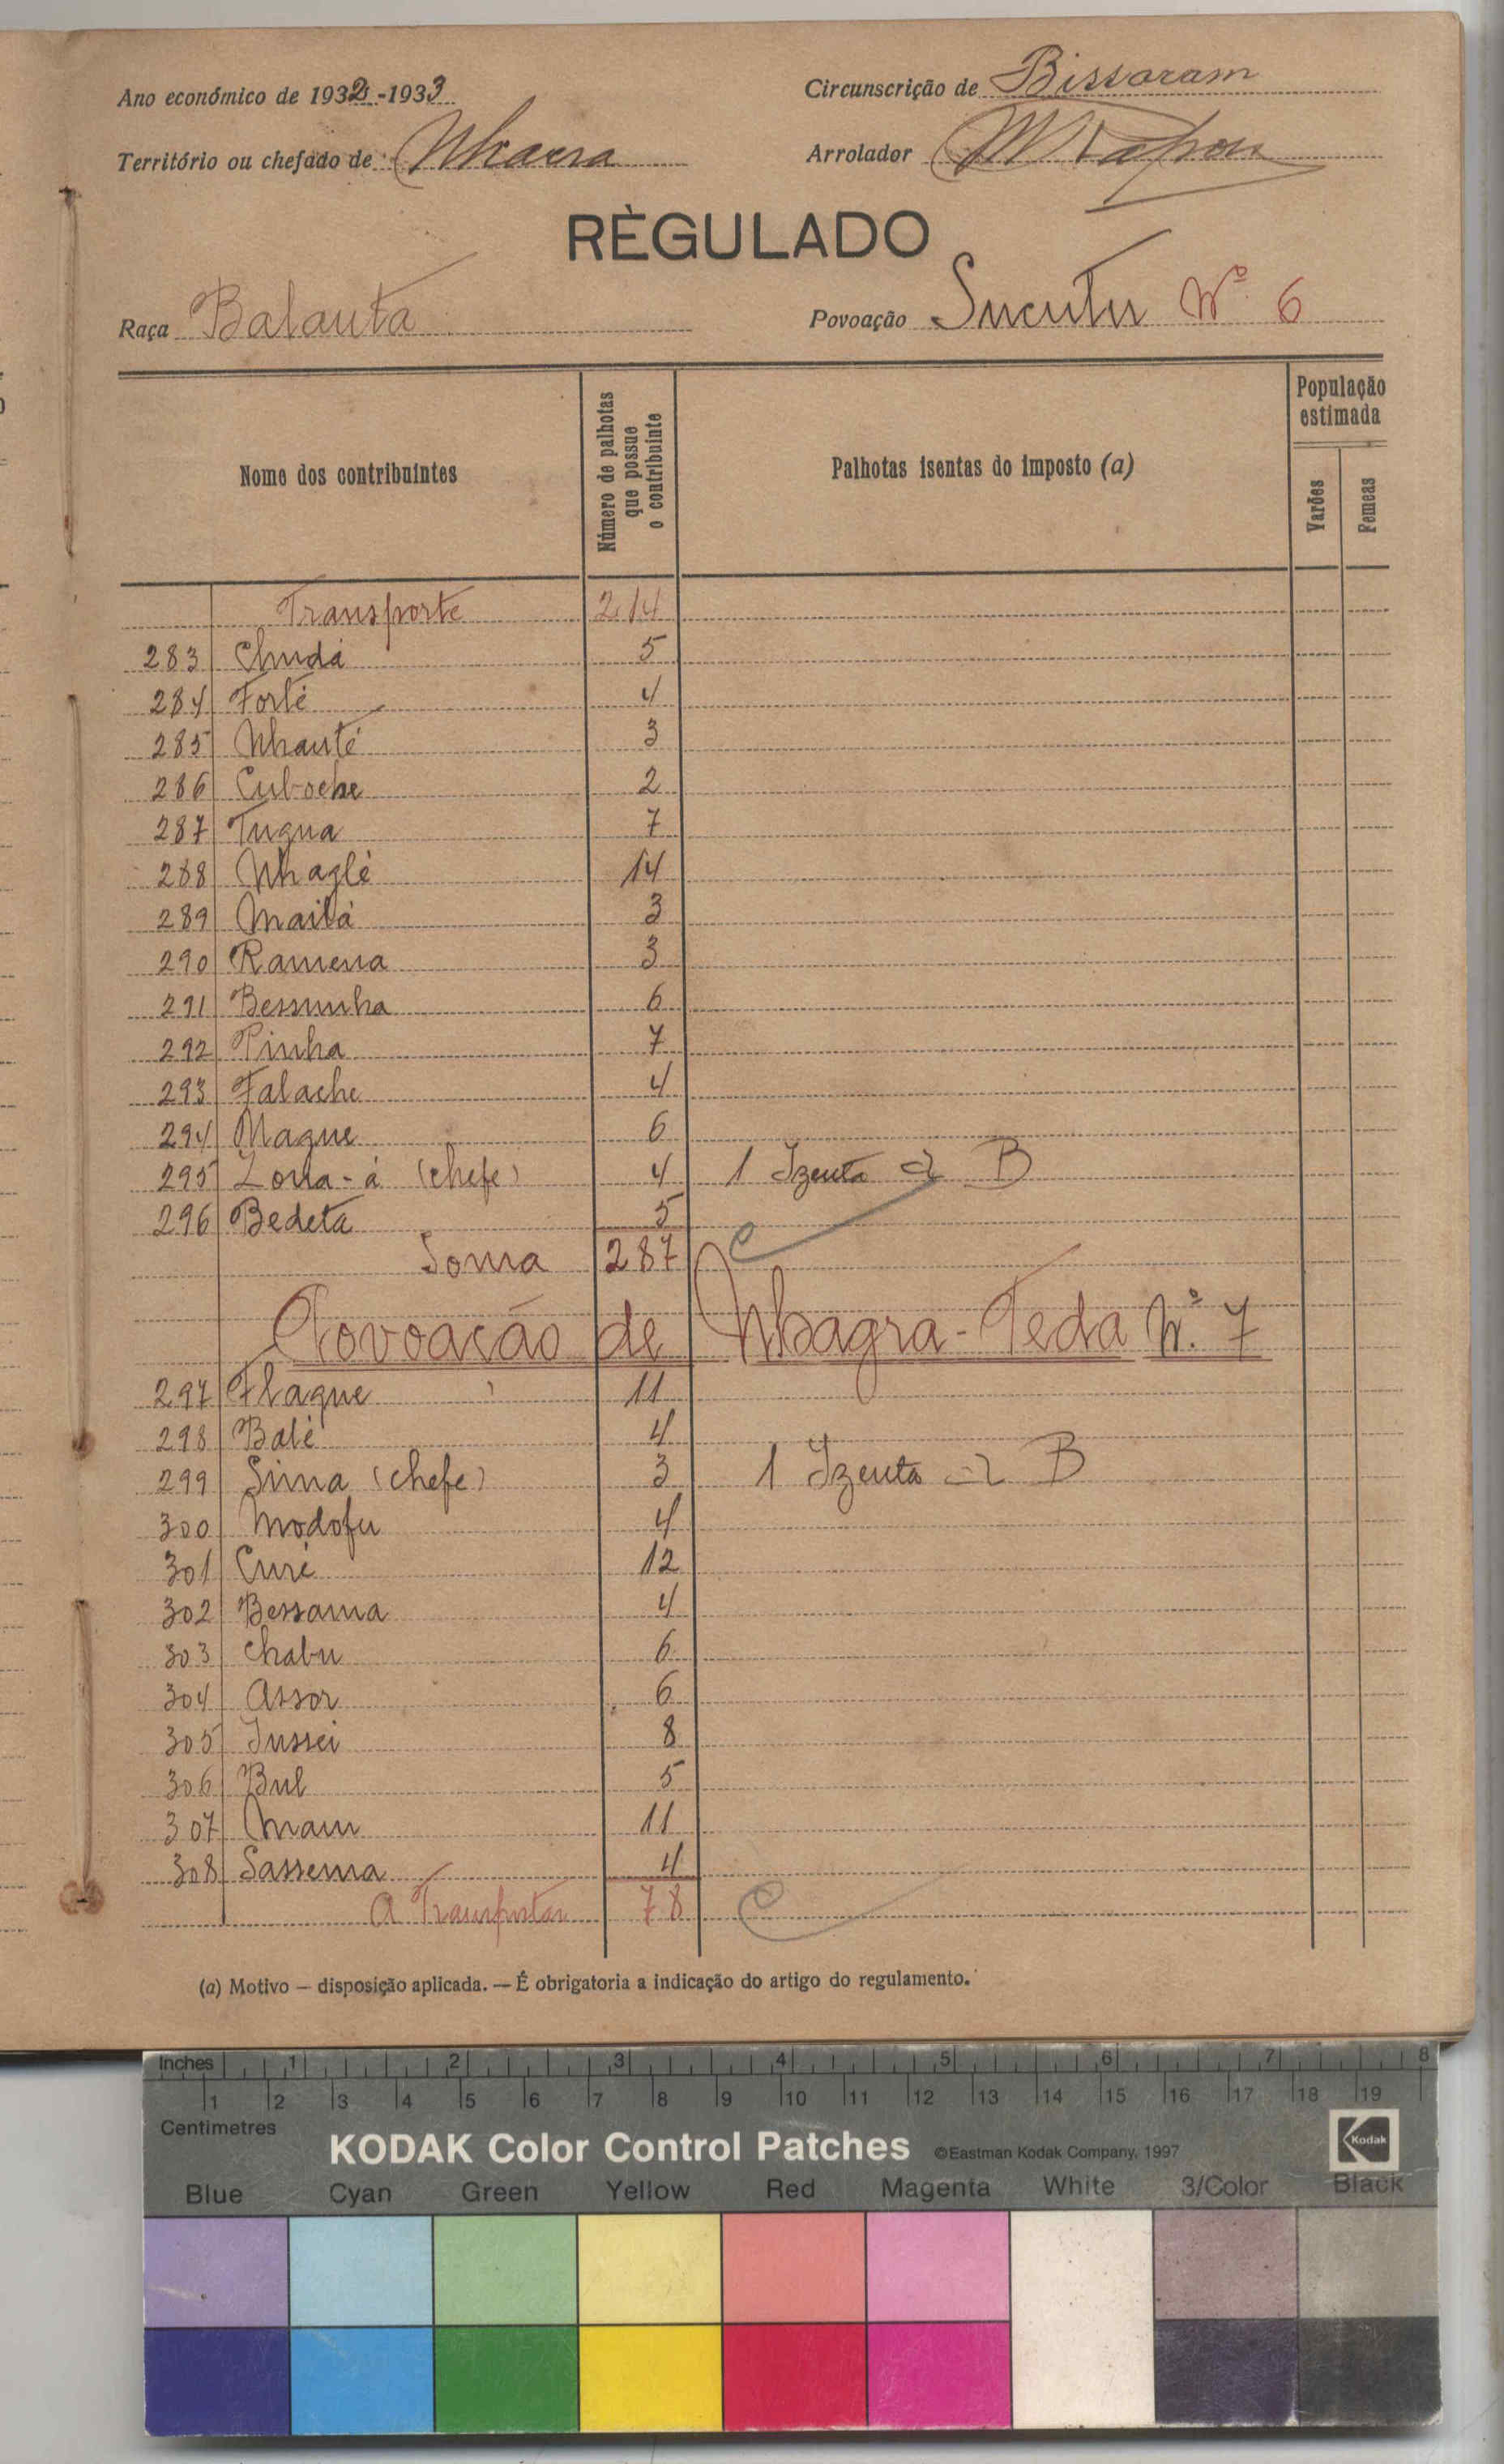 Ano económico de 1932-1933 Circunscrição de Bissoram
Território ou chefado de Nhacra Arrolador
RÈGULADO
Raça Balanta Povoação Sucutu Nº 6
Nome dos contribuintes Número de palhotas que possue o contribuinte Palhotas isentas do imposto (a) População estimada Varões Femeas
Transporte 214
283 Chudá 5
284 Forté 4
285 Nhanté 3
286 Cuboche 2
287 Tugua 7
288 Nhaglé 14
289 Mailá 3
290 Ramena 3
291 Bessunha 6
292 Pinha 7
293 Falache 4
294 Maque 6
295 Lona-á (chefe) 4 1 Izenta a B
296 Bedeta 5
Soma 287
Povoação de Nhagra-Teda Nº 7
297 Flaque 11
298 Balé 4
299 Sima (chefe) 3 1 Izenta a B
300 Modofu 4
301 Curé 12
302 Bessama 4
303 Chabu 6
304 Assor 6
305 Jussei 8
306 Bul 5
307 Mam 11
308 Sassema 4
A Transportar 78
(a) Motivo — disposição aplicada. — É obrigatoria a indicação do artigo do regulamento.
Inches 1 2 3 4 5 6 7 8
1 2 3 4 5 6 7 8 9 10 11 12 13 14 15 16 17 18 19
Centimetres
KODAK Color Control Patches ©Eastman Kodak Company, 1997 Kodak
Blue Cyan Green Yellow Red Magenta White 3/Color Black